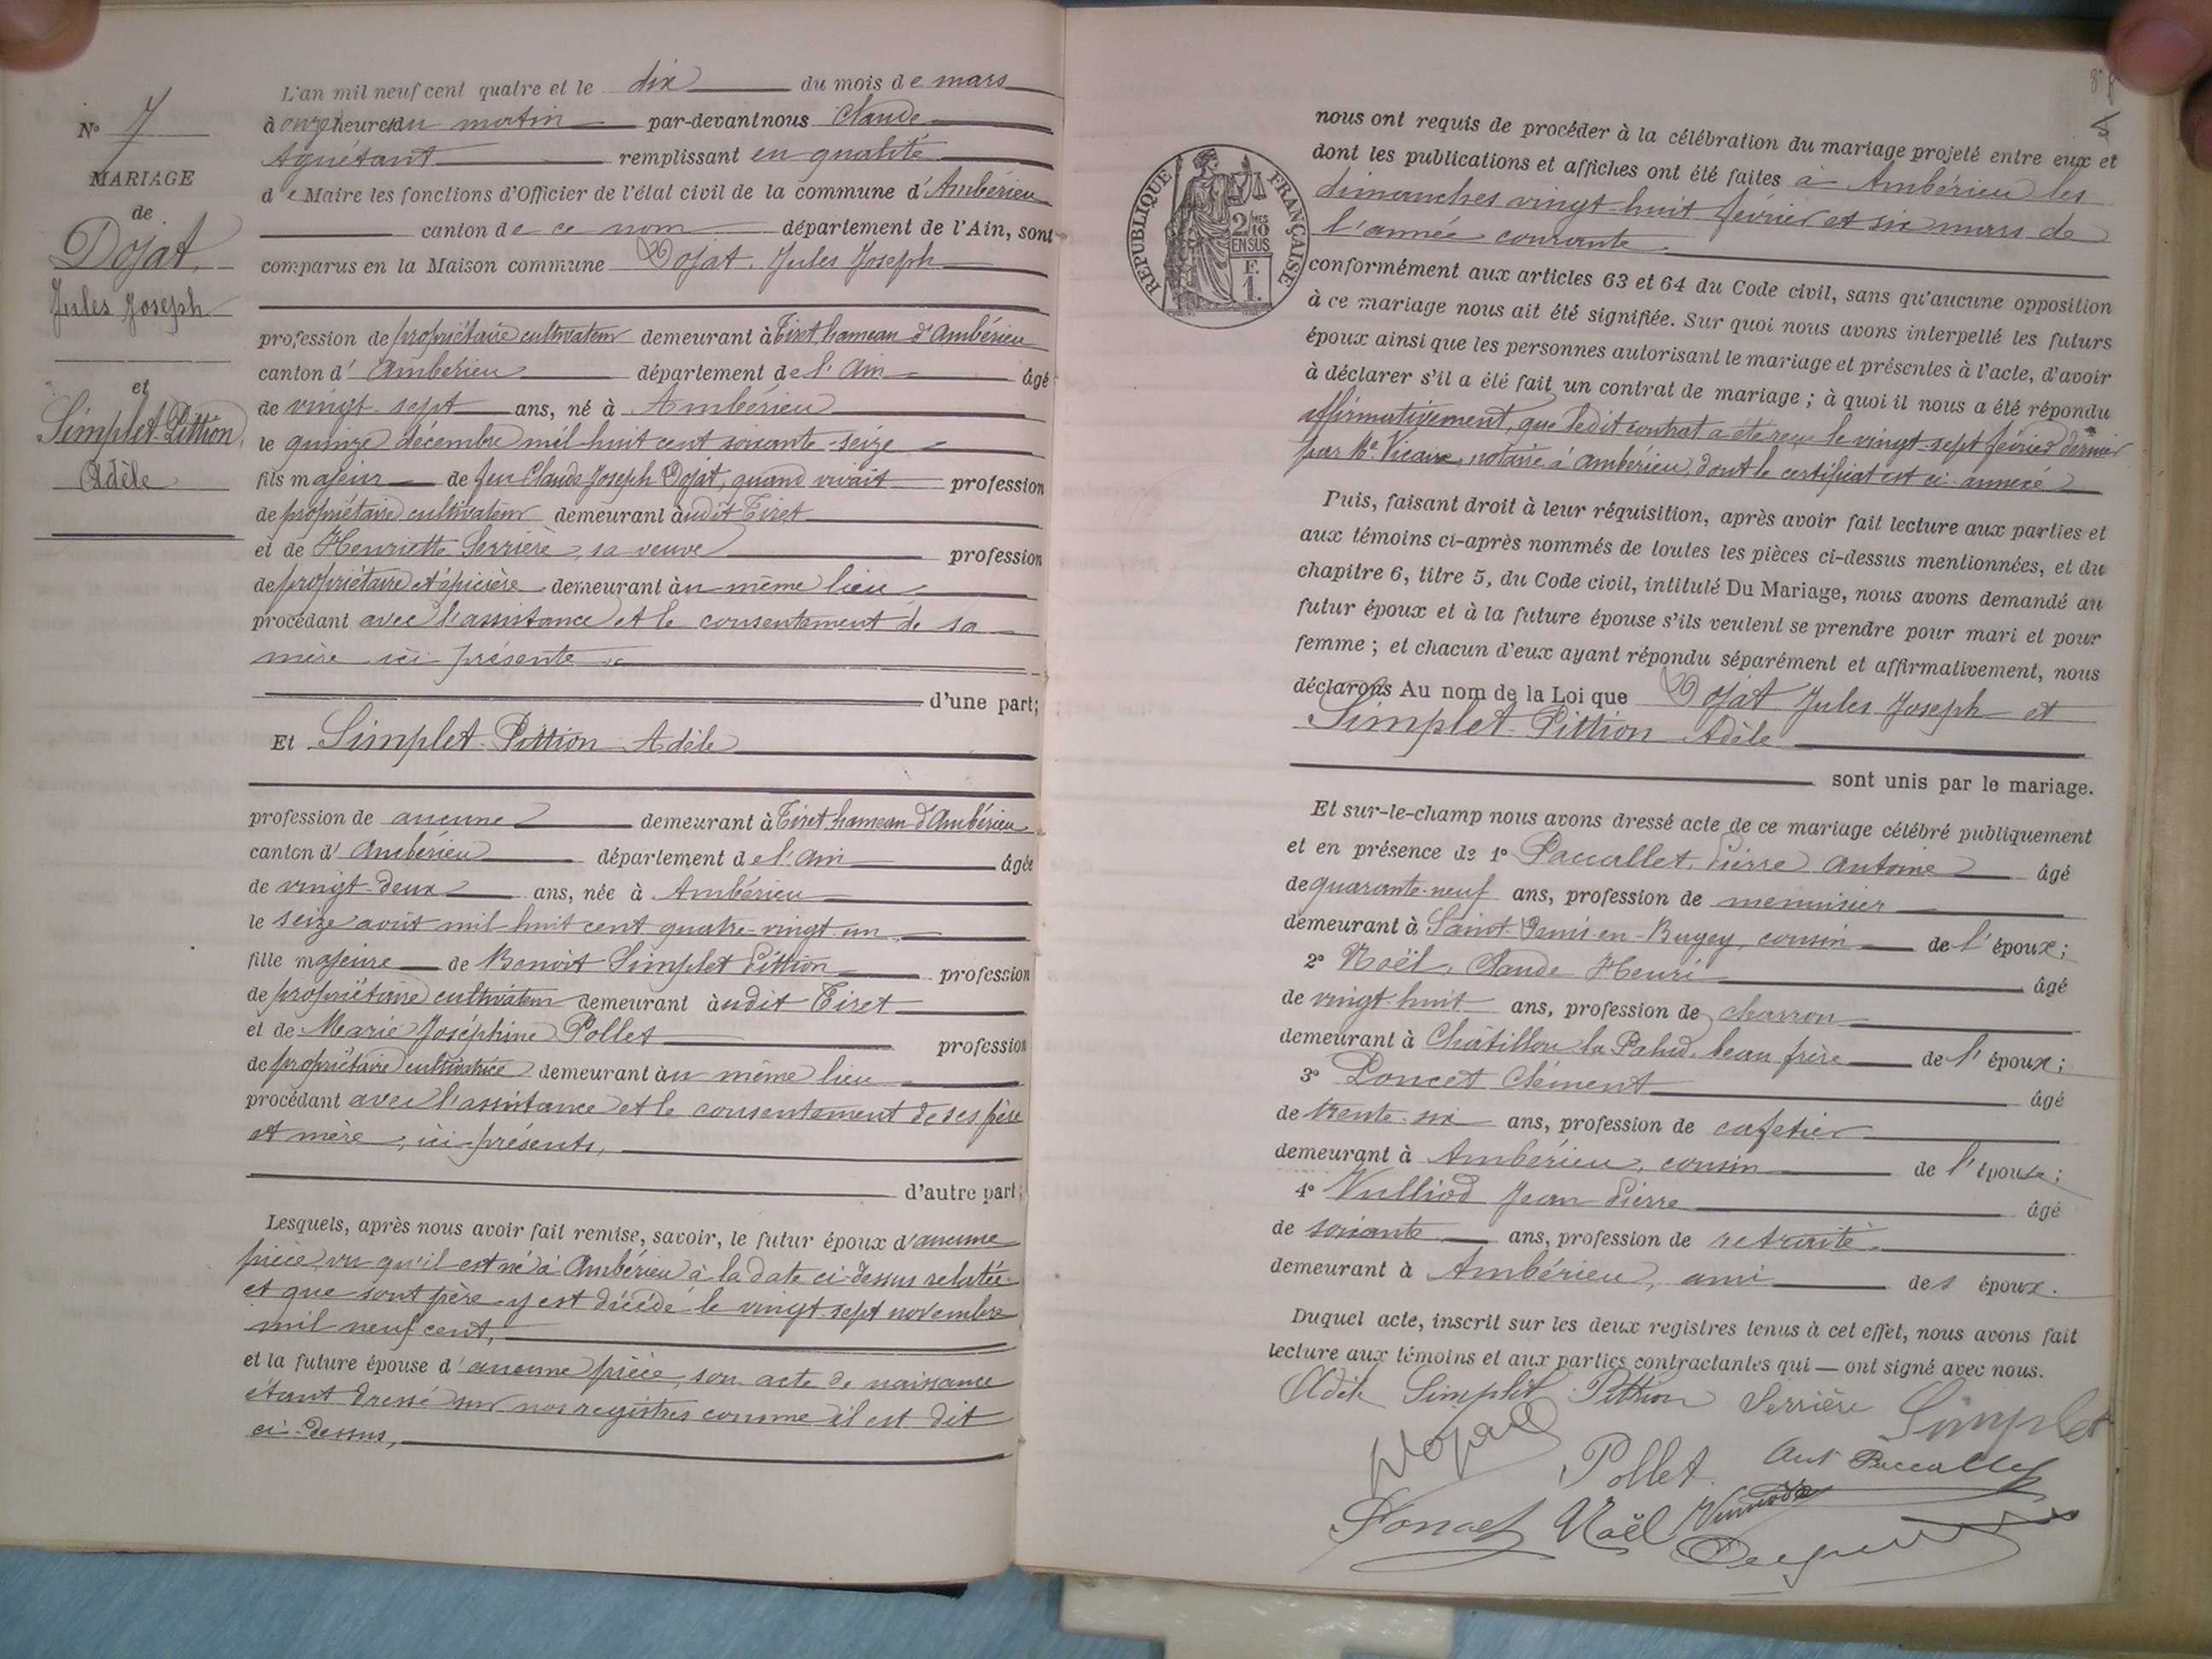 N° 7
MARIAGE
de
Dojat,
Jules Joseph
et
Simplet-Pittion,
Adèle
L'an mil neuf cent quatre et le dix du mois de mars
à onze heures du matin par-devant nous Claude
Aguétant remplissant en qualité
de Maire les fonctions d'Officier de l'état civil de la commune d'Ambérieu
canton de ce nom département de l'Ain, sont
comparus en la Maison commune Dojat, Jules Joseph
profession de propriétaire cultivateur demeurant à Tiret hameau d'Ambérieu
canton d'Ambérieu département de l'Ain âgé
de vingt-sept ans, né à Ambérieu
le quinze décembre mil huit cent soixante-seize
fils majeur de feu Claude Joseph Dojat, quand vivait profession
de propriétaire cultivateur demeurant audit Tiret
et de Henriette Serrière, sa veuve profession
de propriétaire et épicière demeurant au même lieu
procédant avec l'assistance et le consentement de sa
mère ici présente
d'une part;
Et Simplet-Pittion Adèle
profession de aucune demeurant à Tiret hameau d'Ambérieu
canton d'Ambérieu département de l'Ain âgée
de vingt-deux ans, née à Ambérieu
le seize août mil huit cent quatre-vingt-un,
fille majeure de Benoît Simplet Pittion profession
de propriétaire cultivateur demeurant audit Tiret
et de Marie Joséphine Pollet profession
de propriétaire cultivatrice demeurant au même lieu
procédant avec l'assistance et le consentement de ses père
et mère, ici présents,
d'autre part;
Lesquels, après nous avoir fait remise, savoir, le futur époux d'aucune
pièce, vu qu'il est né à Ambérieu à la date ci-dessus relatée
et que sont père y est décédé le vingt-sept novembre
mil neuf cent,
et la future épouse d'aucune pièce, son acte de naissance
étant dressé sur nos registres comme il est dit
ci-dessus,
REPUBLIQUE FRANÇAISE
2/10 MES
EN SUS
F.
1.
nous ont requis de procéder à la célébration du mariage projeté entre eux et
dont les publications et affiches ont été faites à Ambérieu les
dimanches vingt-huit février et six mars de
l'année courante
conformément aux articles 63 et 64 du Code civil, sans qu'aucune opposition
à ce mariage nous ait été signifiée. Sur quoi nous avons interpellé les futurs
époux ainsi que les personnes autorisant le mariage et présentes à l'acte, d'avoir
à déclarer s'il a été fait un contrat de mariage; à quoi il nous a été répondu
affirmativement, que ledit contrat a été reçu le vingt-sept février dernier
par Me Vicaire, notaire à Ambérieu, dont le certificat est ci-annexé
Puis, faisant droit à leur réquisition, après avoir fait lecture aux parties et
aux témoins ci-après nommés de toutes les pièces ci-dessus mentionnées, et du
chapitre 6, titre 5, du Code civil, intitulé Du Mariage, nous avons demandé au
futur époux et à la future épouse s'ils veulent se prendre pour mari et pour
femme; et chacun d'eux ayant répondu séparément et affirmativement, nous
déclarons Au nom de la Loi que Dojat Jules Joseph et
Simplet-Pittion Adèle
sont unis par le mariage.
Et sur-le-champ nous avons dressé acte de ce mariage célébré publiquement
et en présence de 1° Paccallet, Pierre Antoine âgé
de quarante-neuf ans, profession de menuisier
demeurant à Saint-Denis-en-Bugey, cousin de l'époux;
2° Noël, Claude Henri âgé
de vingt-huit ans, profession de charron
demeurant à Châtillon la Palud, beau frère de l'époux;
3° Poncet Clément âgé
de trente-six ans, profession de cafetier
demeurant à Ambérieu, cousin de l'épouse;
4° Vulliod Jean Pierre âgé
de soixante ans, profession de retraité
demeurant à Ambérieu, ami des époux.
Duquel acte, inscrit sur les deux registres tenus à cet effet, nous avons fait
lecture aux témoins et aux parties contractantes qui — ont signé avec nous.
Adèle Simplet Pittion Serrière Simplet
Dojat Pollet Ant Paccallet
Poncet Noël Vulliod